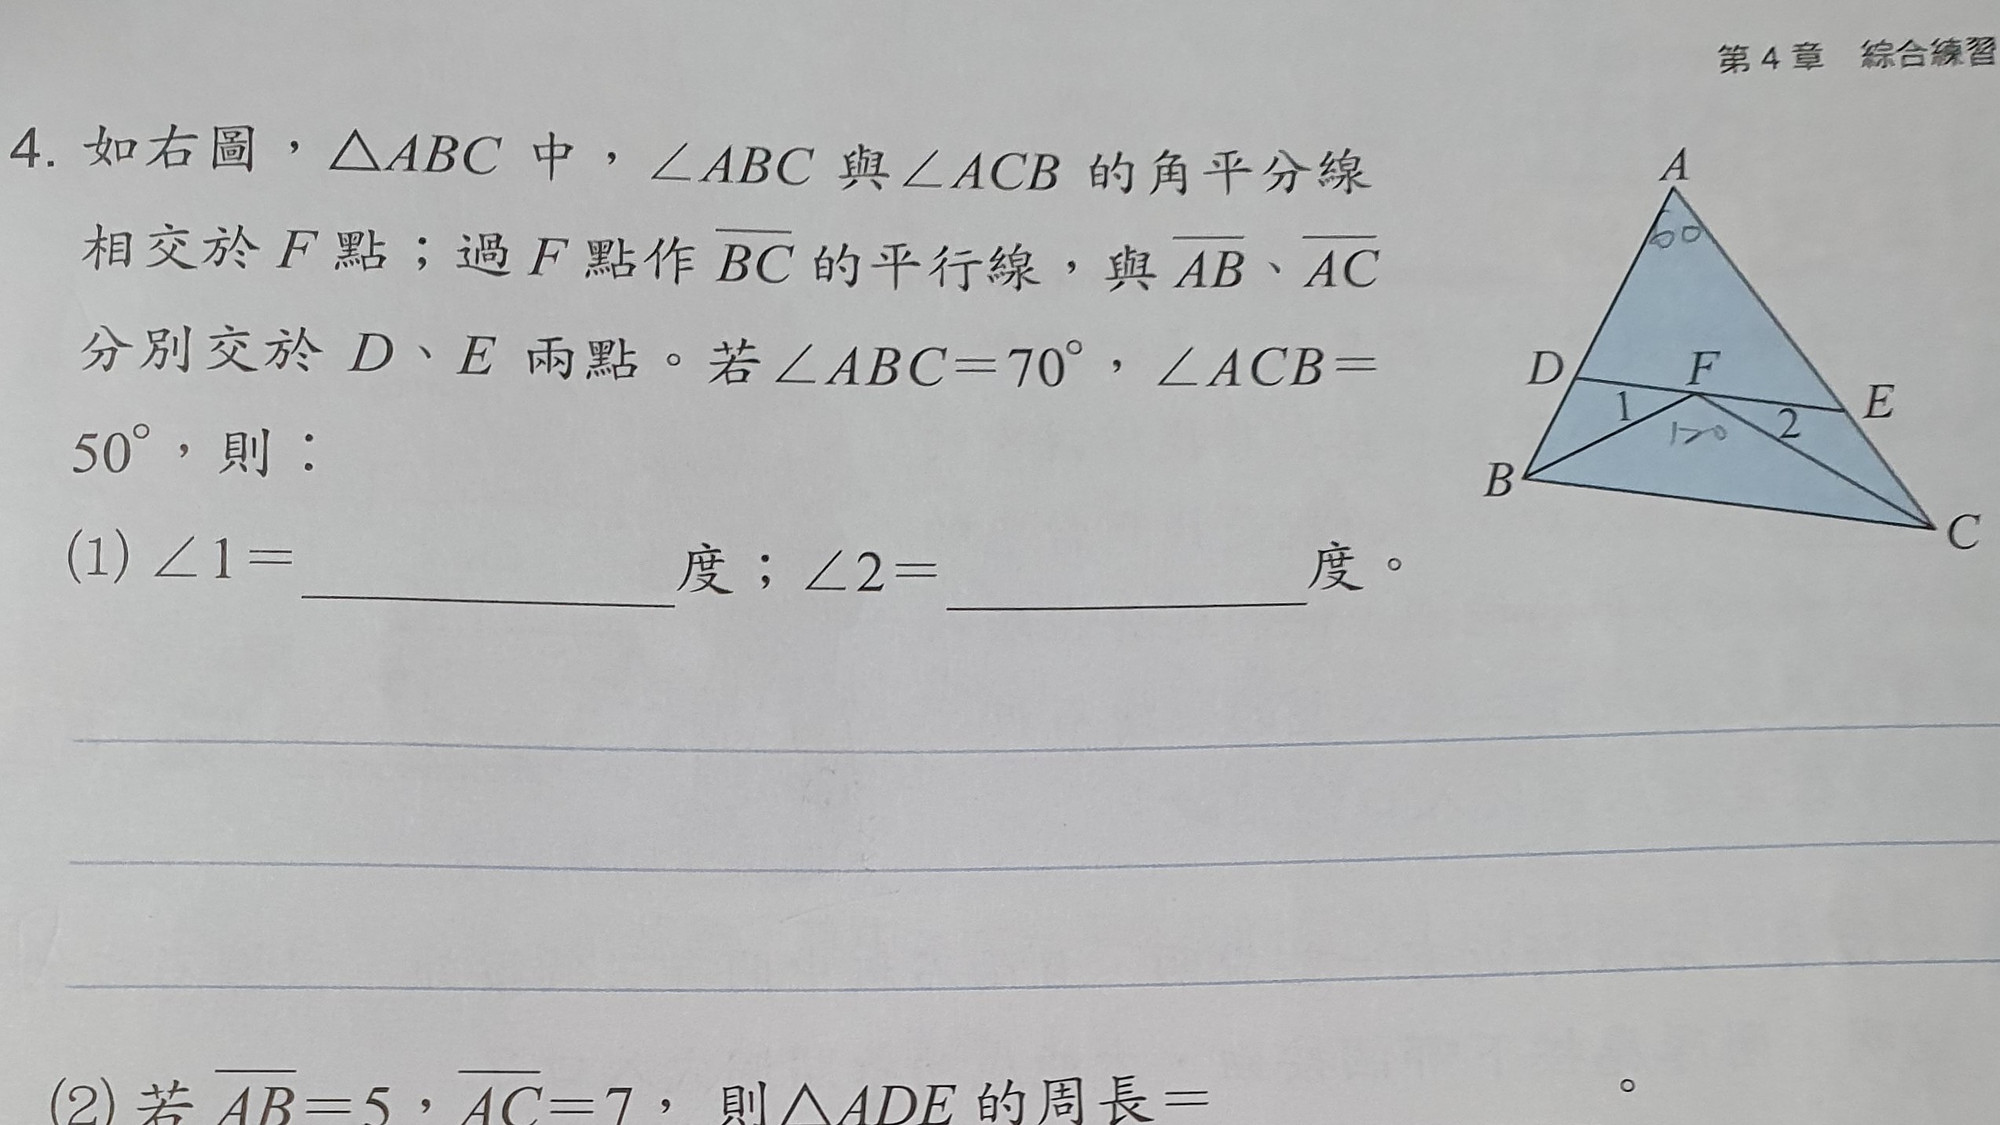 第 4 章 綜合練習
4. 如右圖，△ABC 中，∠ABC 與∠ACB 的角平分線
相交於 F 點；過 F 點作 BC 的平行線，與 AB、AC
分別交於 D、E 兩點。若∠ABC＝70°，∠ACB＝
50°，則：
(1) ∠1＝ 度；∠2＝ 度。
(2) 若 AB＝5，AC＝7， 則△ADE 的周長＝ 。
A
60
D
F
E
1
2
120
B
C